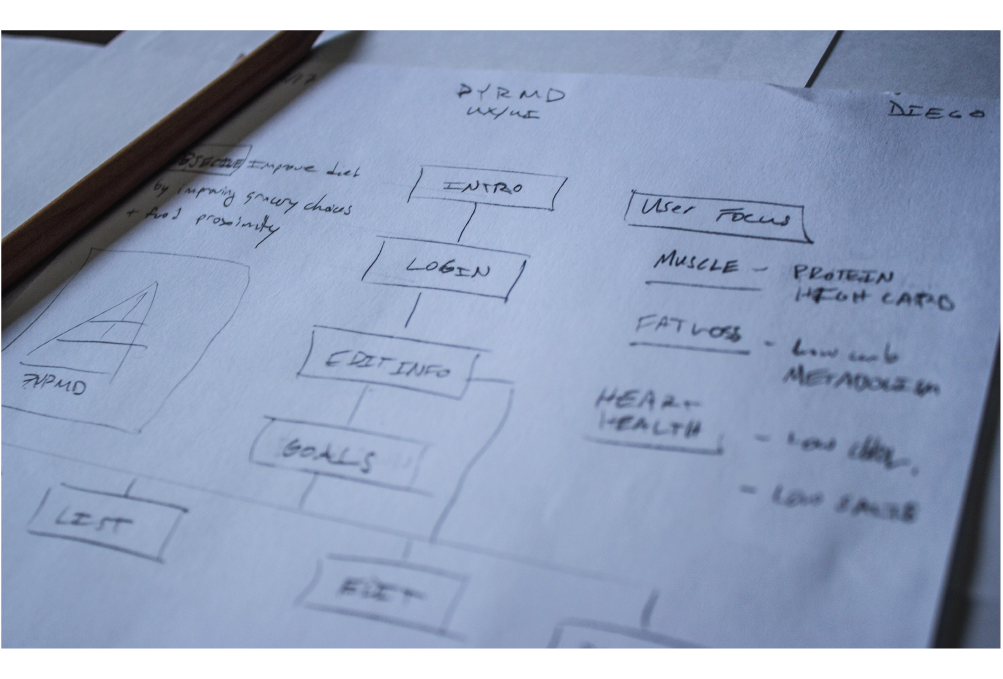 PYRMD
UX/UI
DIEGO
Improve diet
by improving grocery choices
+ food proximity
PYRMD
INTRO
LOGIN
EDIT INFO
GOALS
LIST
EDIT
User Focus
MUSCLE - PROTEIN
HIGH CARB
FAT LOSS - Low carb
METABOLISM
HEART
HEALTH - Low
- LOW